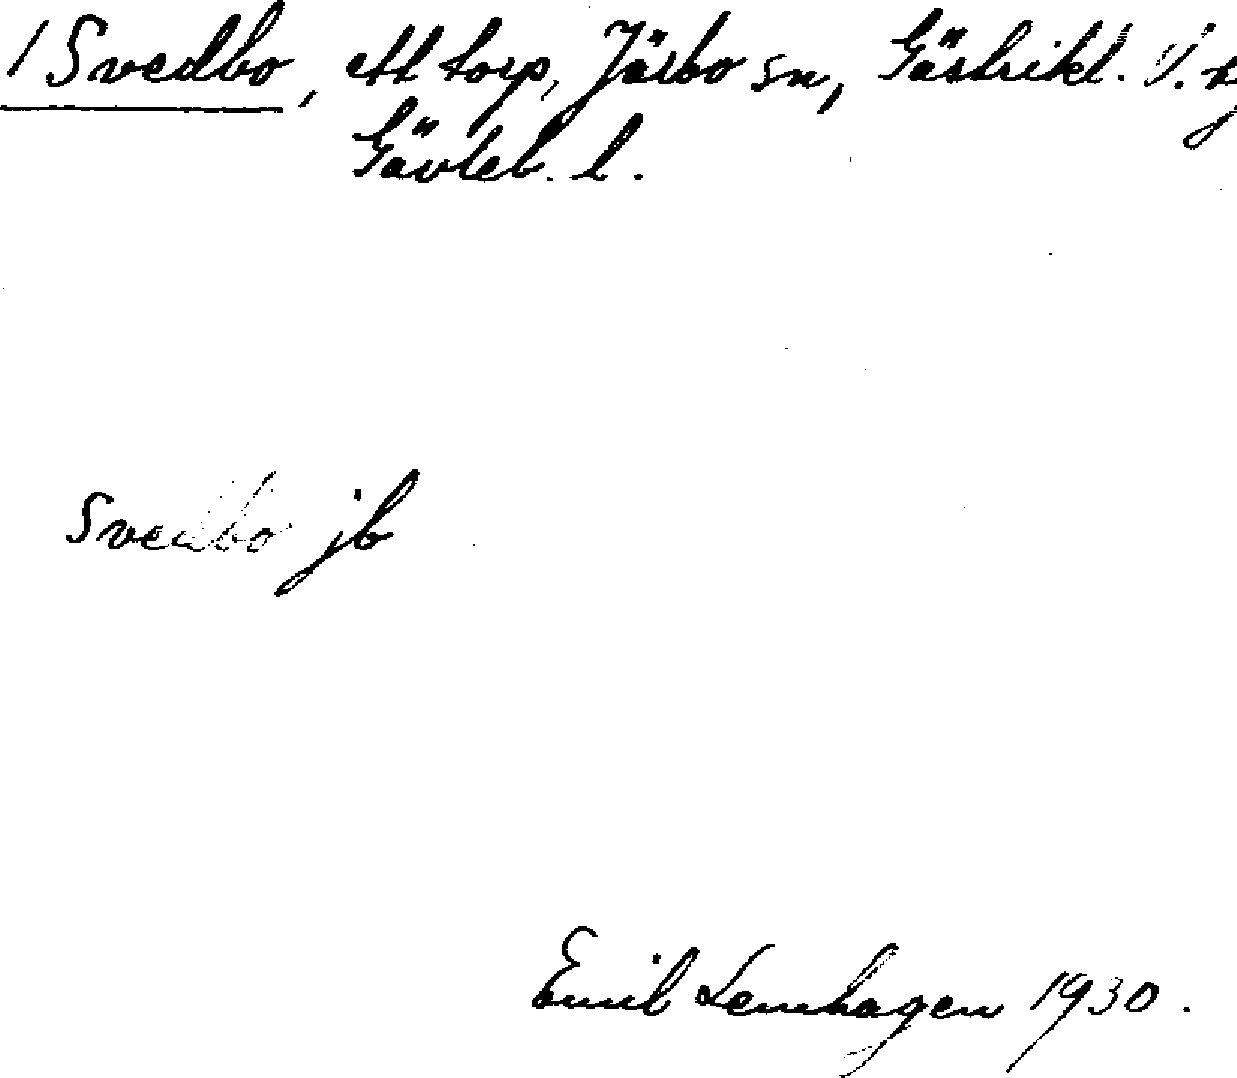 1 Svedbo, ett torp, Järbo sn, Gästrikl. V. tg
Gävleb. l.
Svedbo jb
Emil Lenhagen 1930.